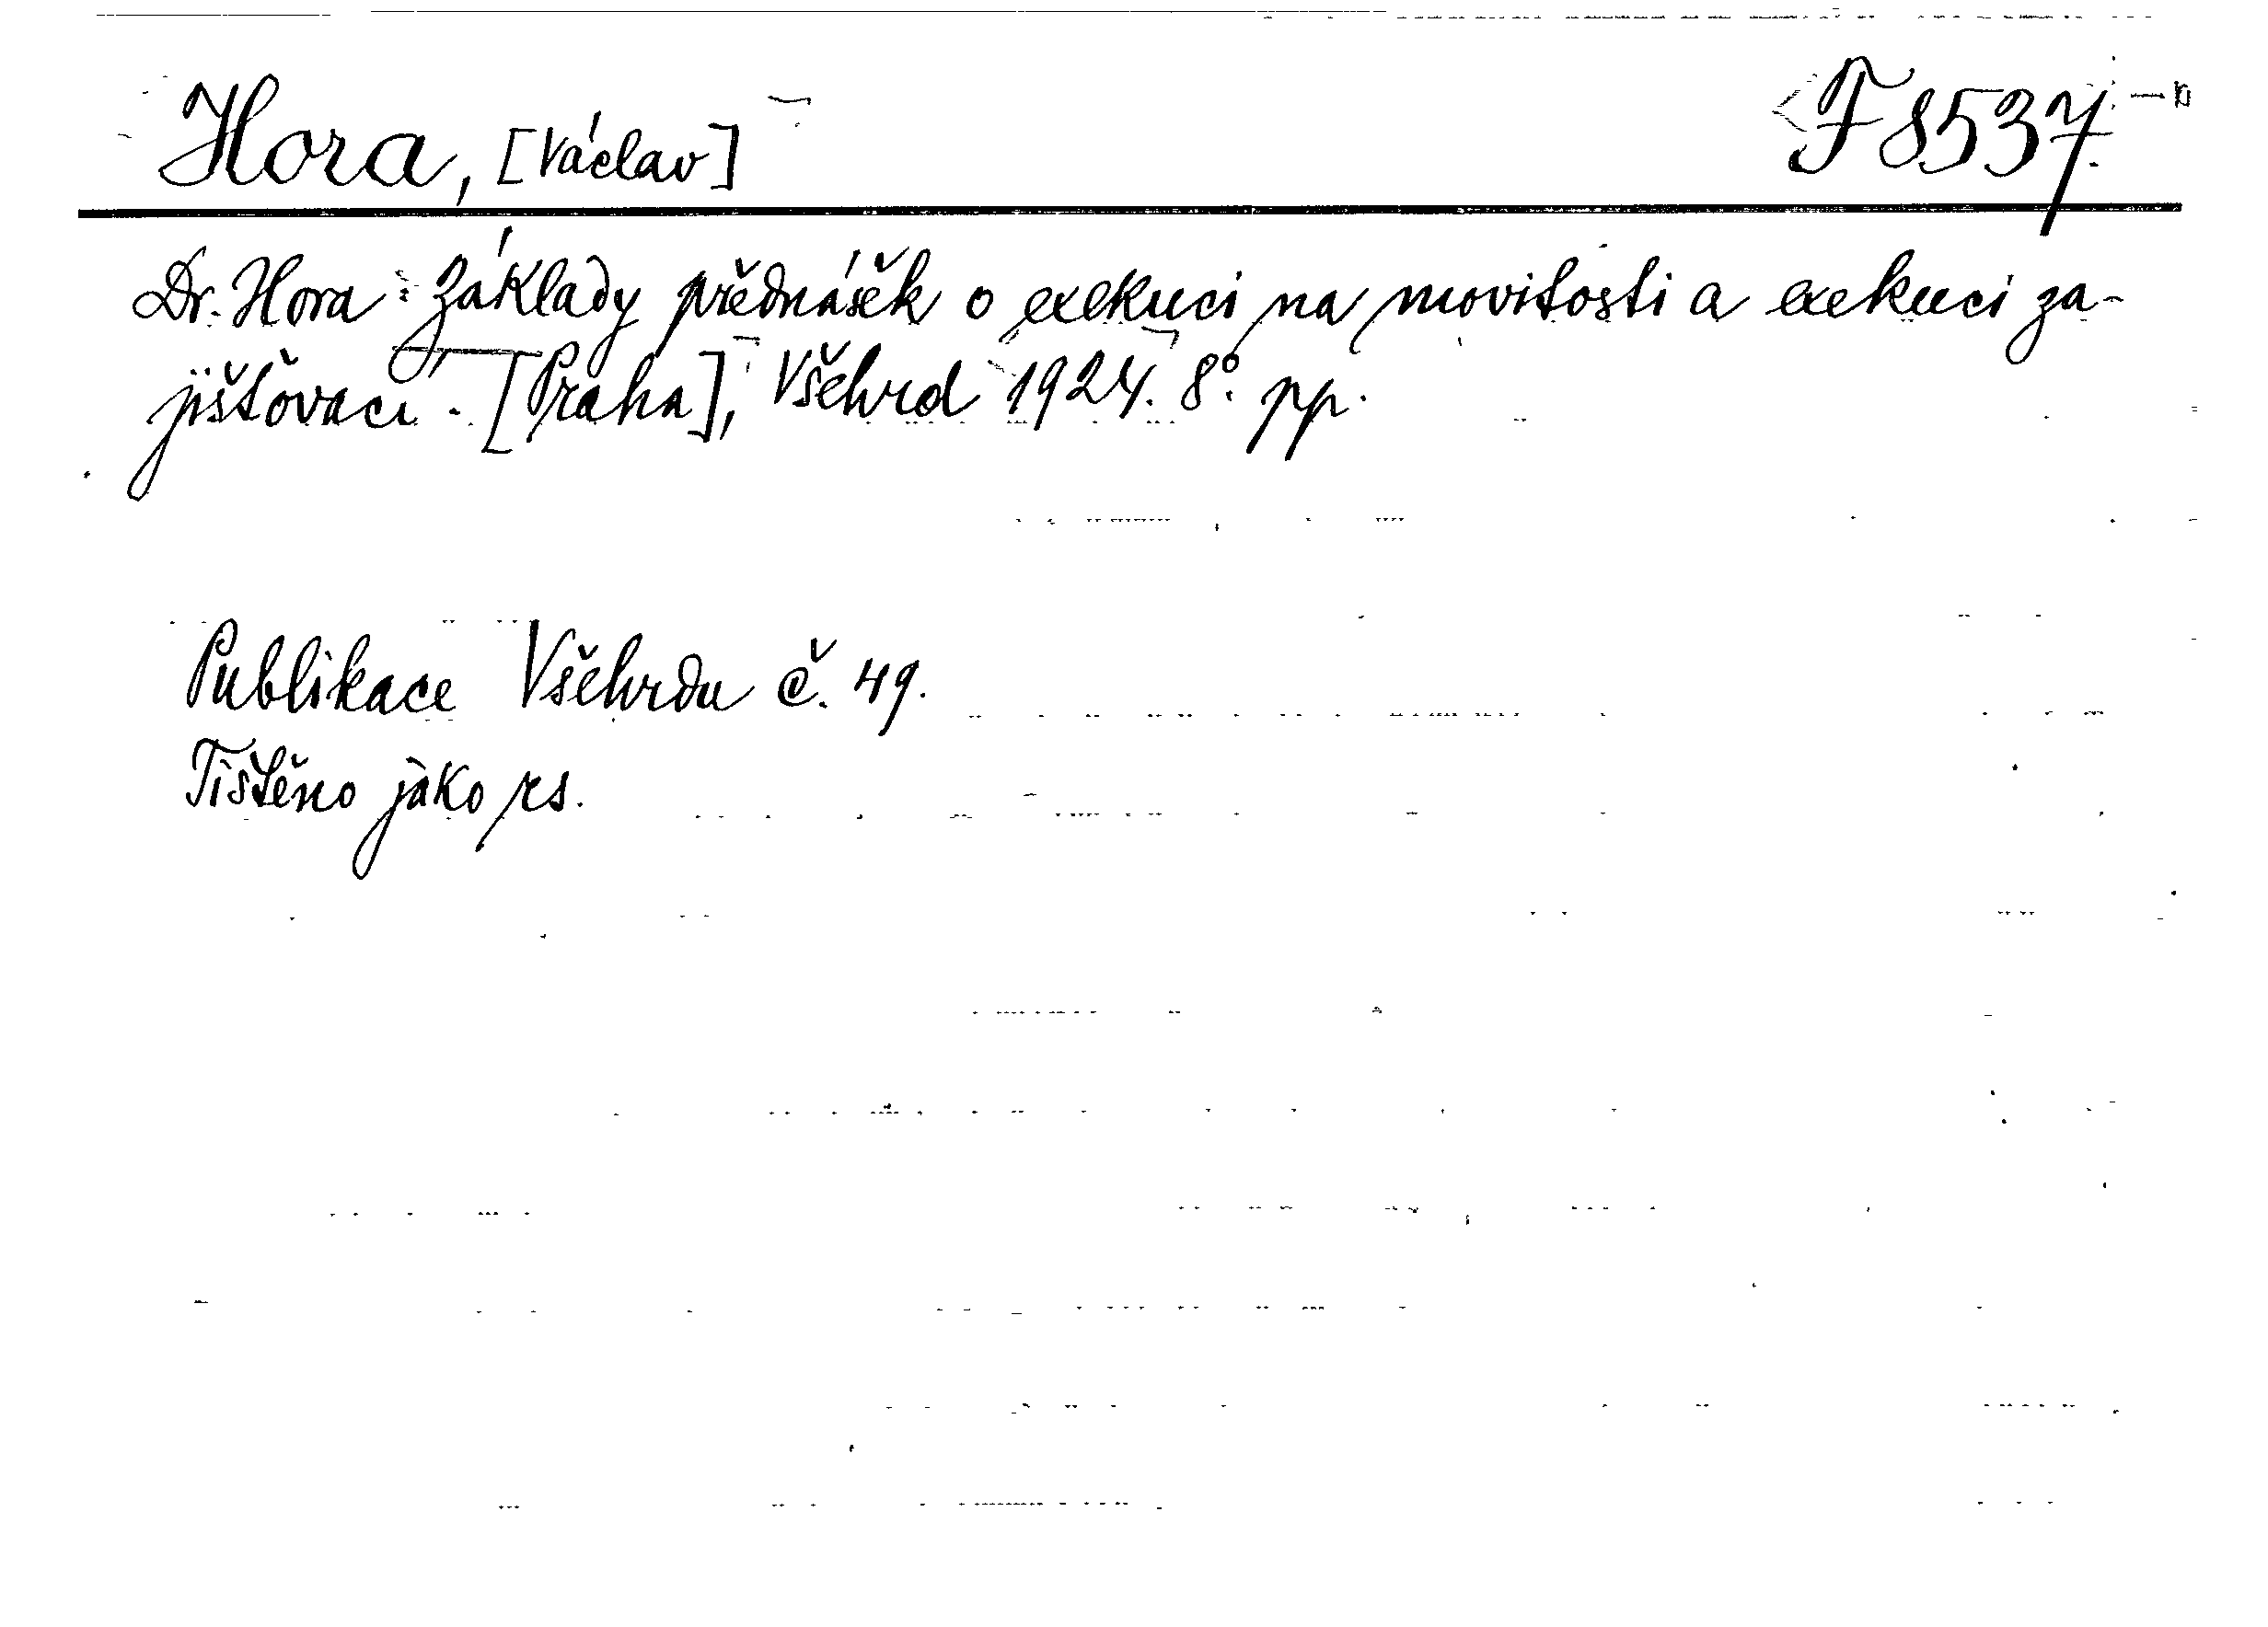 Hora, [Václav] F 8537.
Dr. Hora: Základy přednášek o exekuci na movitosti a exekuci za-
jišťovací. [Praha], Všehrd 1924. 8°. pp.
Publikace Všehrdu č. 49.
Tištěno jako rs.